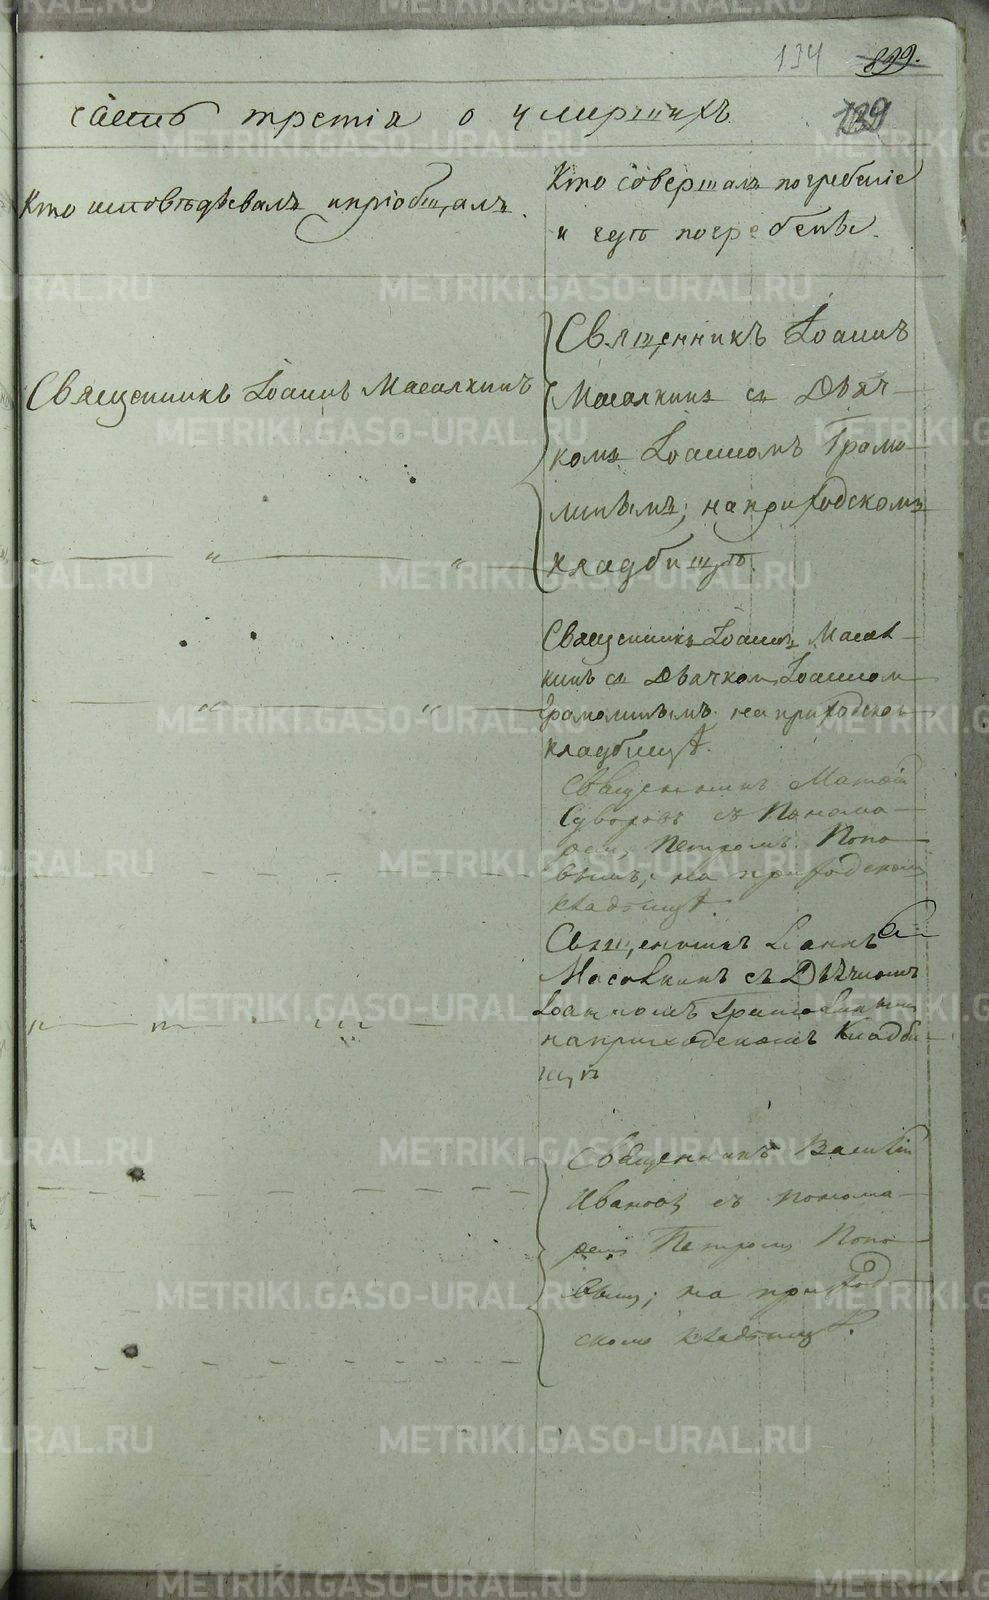 134 899.
часть третія о умершихъ.
139
Кто исповѣдывалъ и пріобщалъ.
Кто совершалъ погребеніе
и гдѣ погребены.
Священникъ Іоаннъ Масалкинъ
Священникъ Іоаннъ
Масалкинъ съ Дьяч-
комъ Іоанномъ Грамо-
линымъ; на приходскомъ
кладбищѣ.
Священникъ Іоаннъ Масал-
кинъ съ Дьячкомъ Іоанномъ
Грамолинымъ на приходскомъ
кладбищѣ.
Священникъ Матѳій
Суворовъ съ Понома-
ремъ Петромъ Попо-
вымъ; на приходскомъ
кладбищѣ.
Священникъ Іоаннъ
Масалкинъ съ Дьячкомъ
Іоанномъ Грамолинымъ
на приходскомъ Кладби-
щѣ
Священникъ Василій
Ивановъ съ понома-
ремъ Петромъ Попо-
вымъ; на приход-
скомъ кладбищѣ.
METRIKI.GASO-URAL.RU